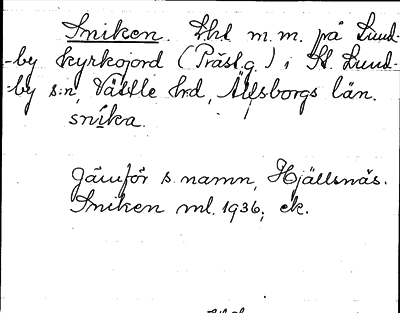 Sniken. Lht m.m. på Lund-
-by kyrkojord (Prästg.) i St. Lund-
-by s:n, Vättle hd, Älfsborgs län.
snika.
Jämför s. namn, Hjällsnäs.
Sniken ml. 1936; ek.